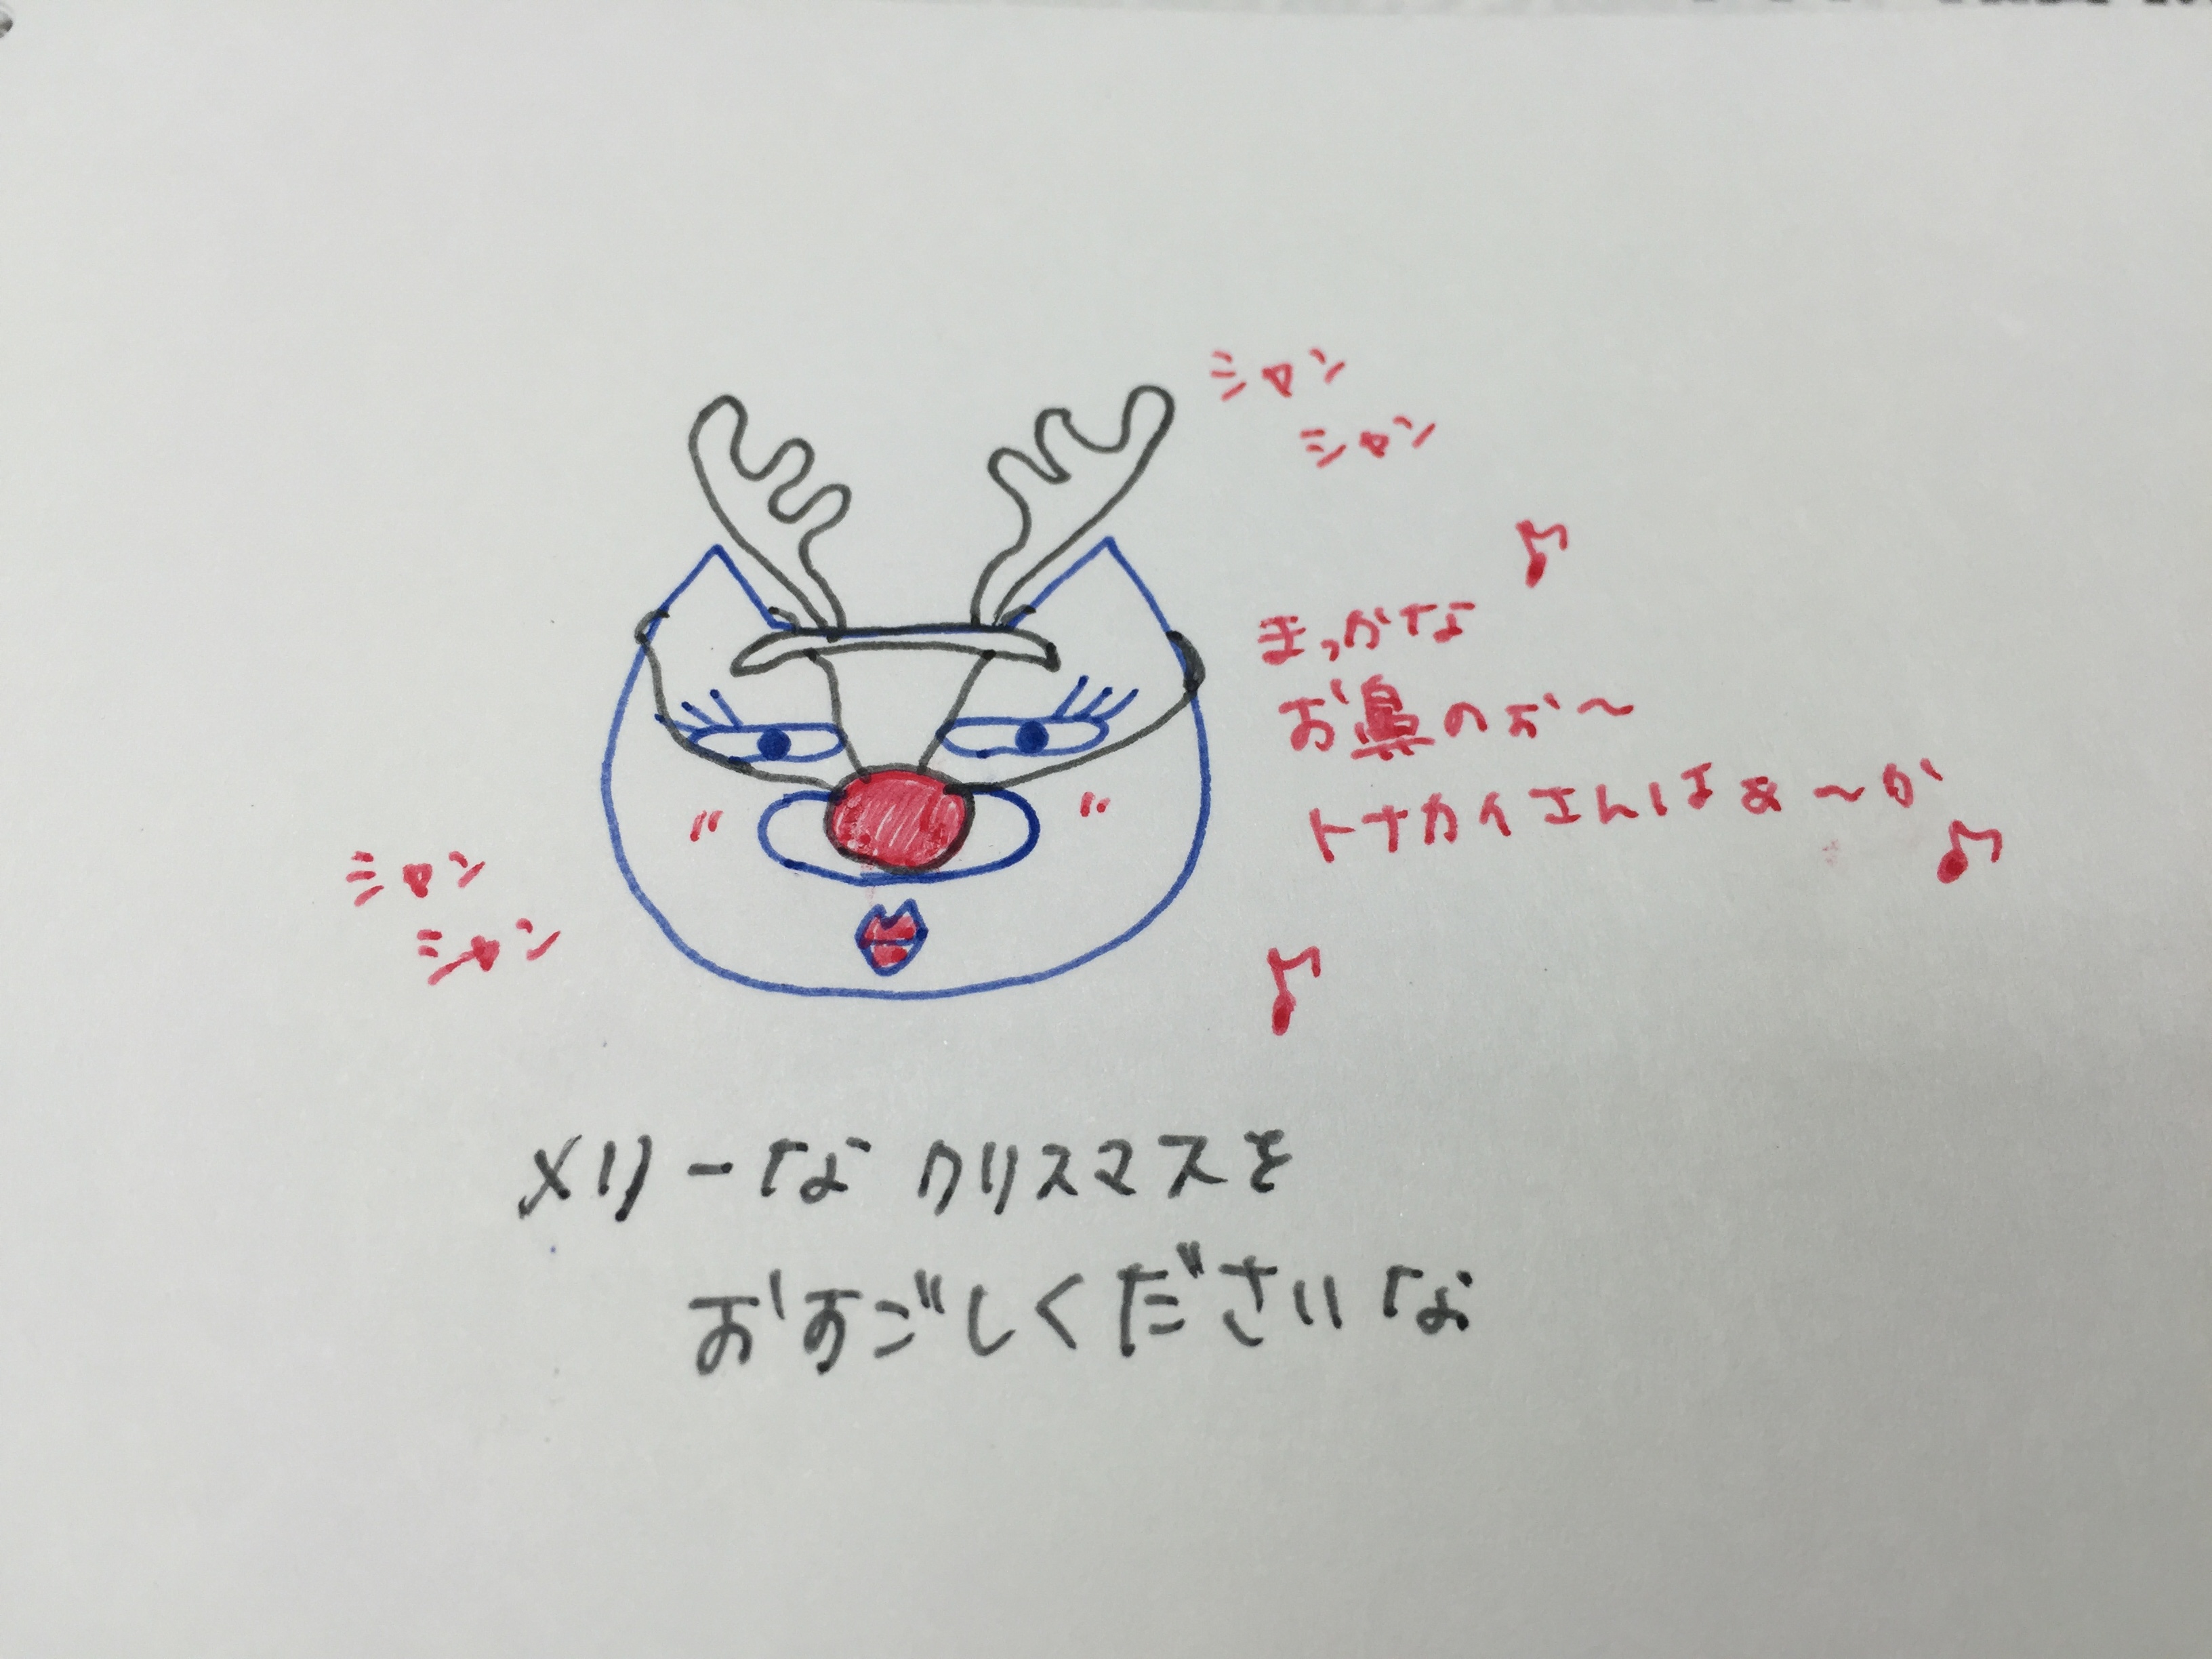 シャン
シャン
まっかな
お鼻のぉ〜
トナカイさんはぁ〜が
シャン
シャン
メリーなクリスマスを
おすごしくださいな